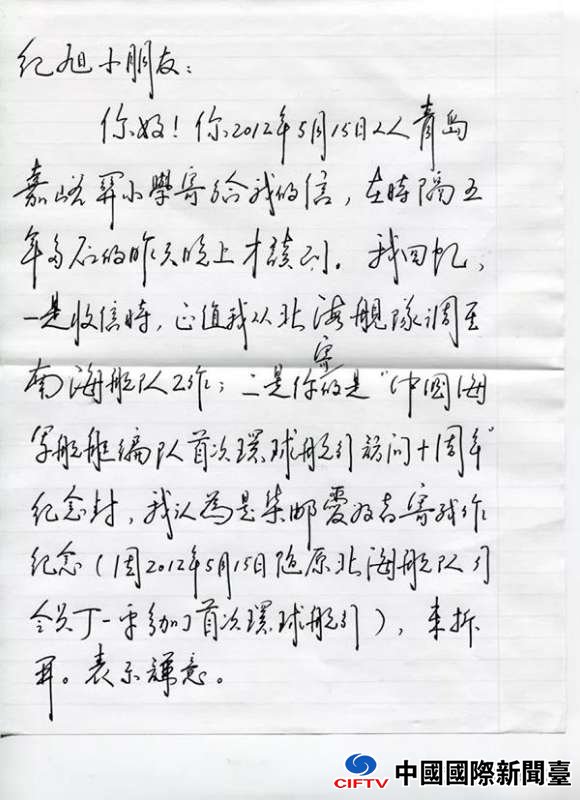 纪旭小朋友：
你好！你2012年5月15日从青岛
嘉峪関小學寄给我的信，在時隔五
年多后的昨天晚上才讀到。我回忆，
一是收信時，正值我从北海舰隊调至
南海舰队工作；二是你寄的是“中國海
军舰艇编队首次環球航行訪问十周年”
纪念封，我认為是集邮爱好者寄我作
纪念（因2012年5月15日随原北海舰队司
令员丁一平参加了首次環球航行），未拆
開。表示歉意。
CIFTV 中國國際新聞臺